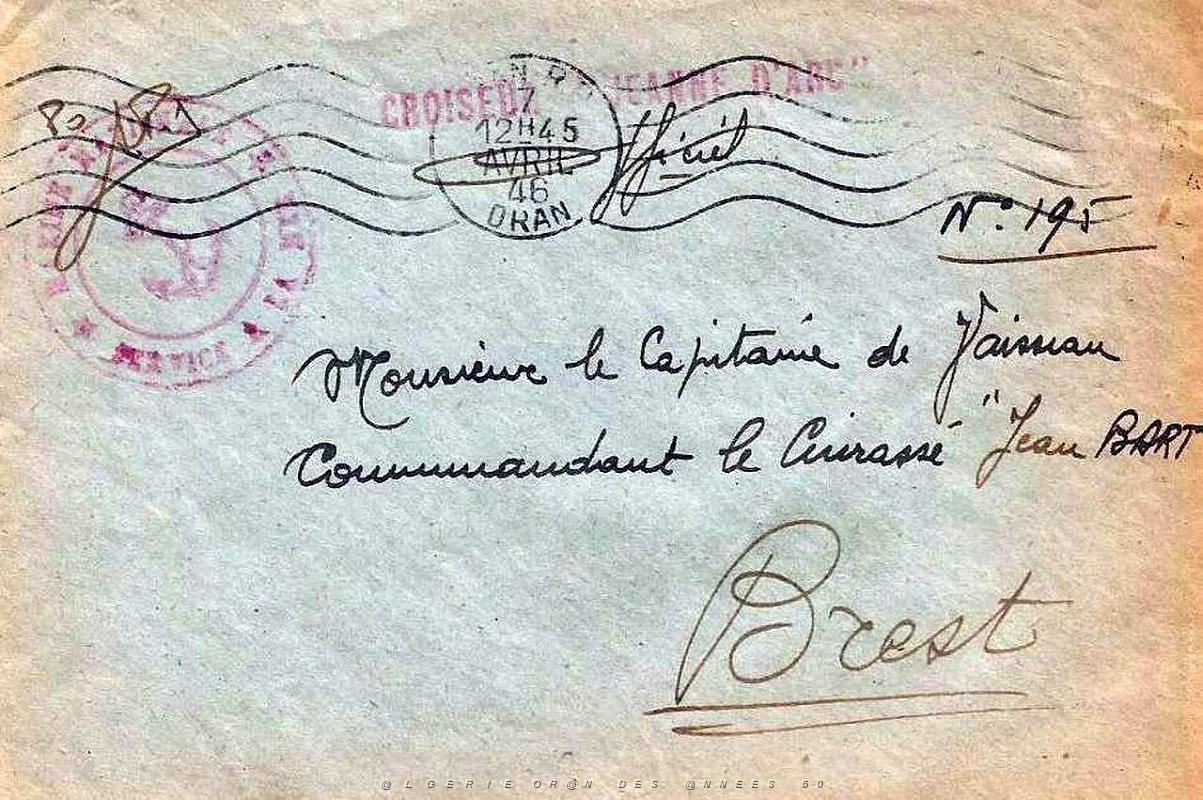 CROISEUR "JEANNE D'ARC"
7
12H45
AVRIL
46
ORAN
Officiel
N° 195
SERVICE A LA MER
Monsieur le Capitaine de Vaisseau
Commandant le Cuirassé "Jean BART
Brest
@LGERIE OR@N DES @NNEES 50